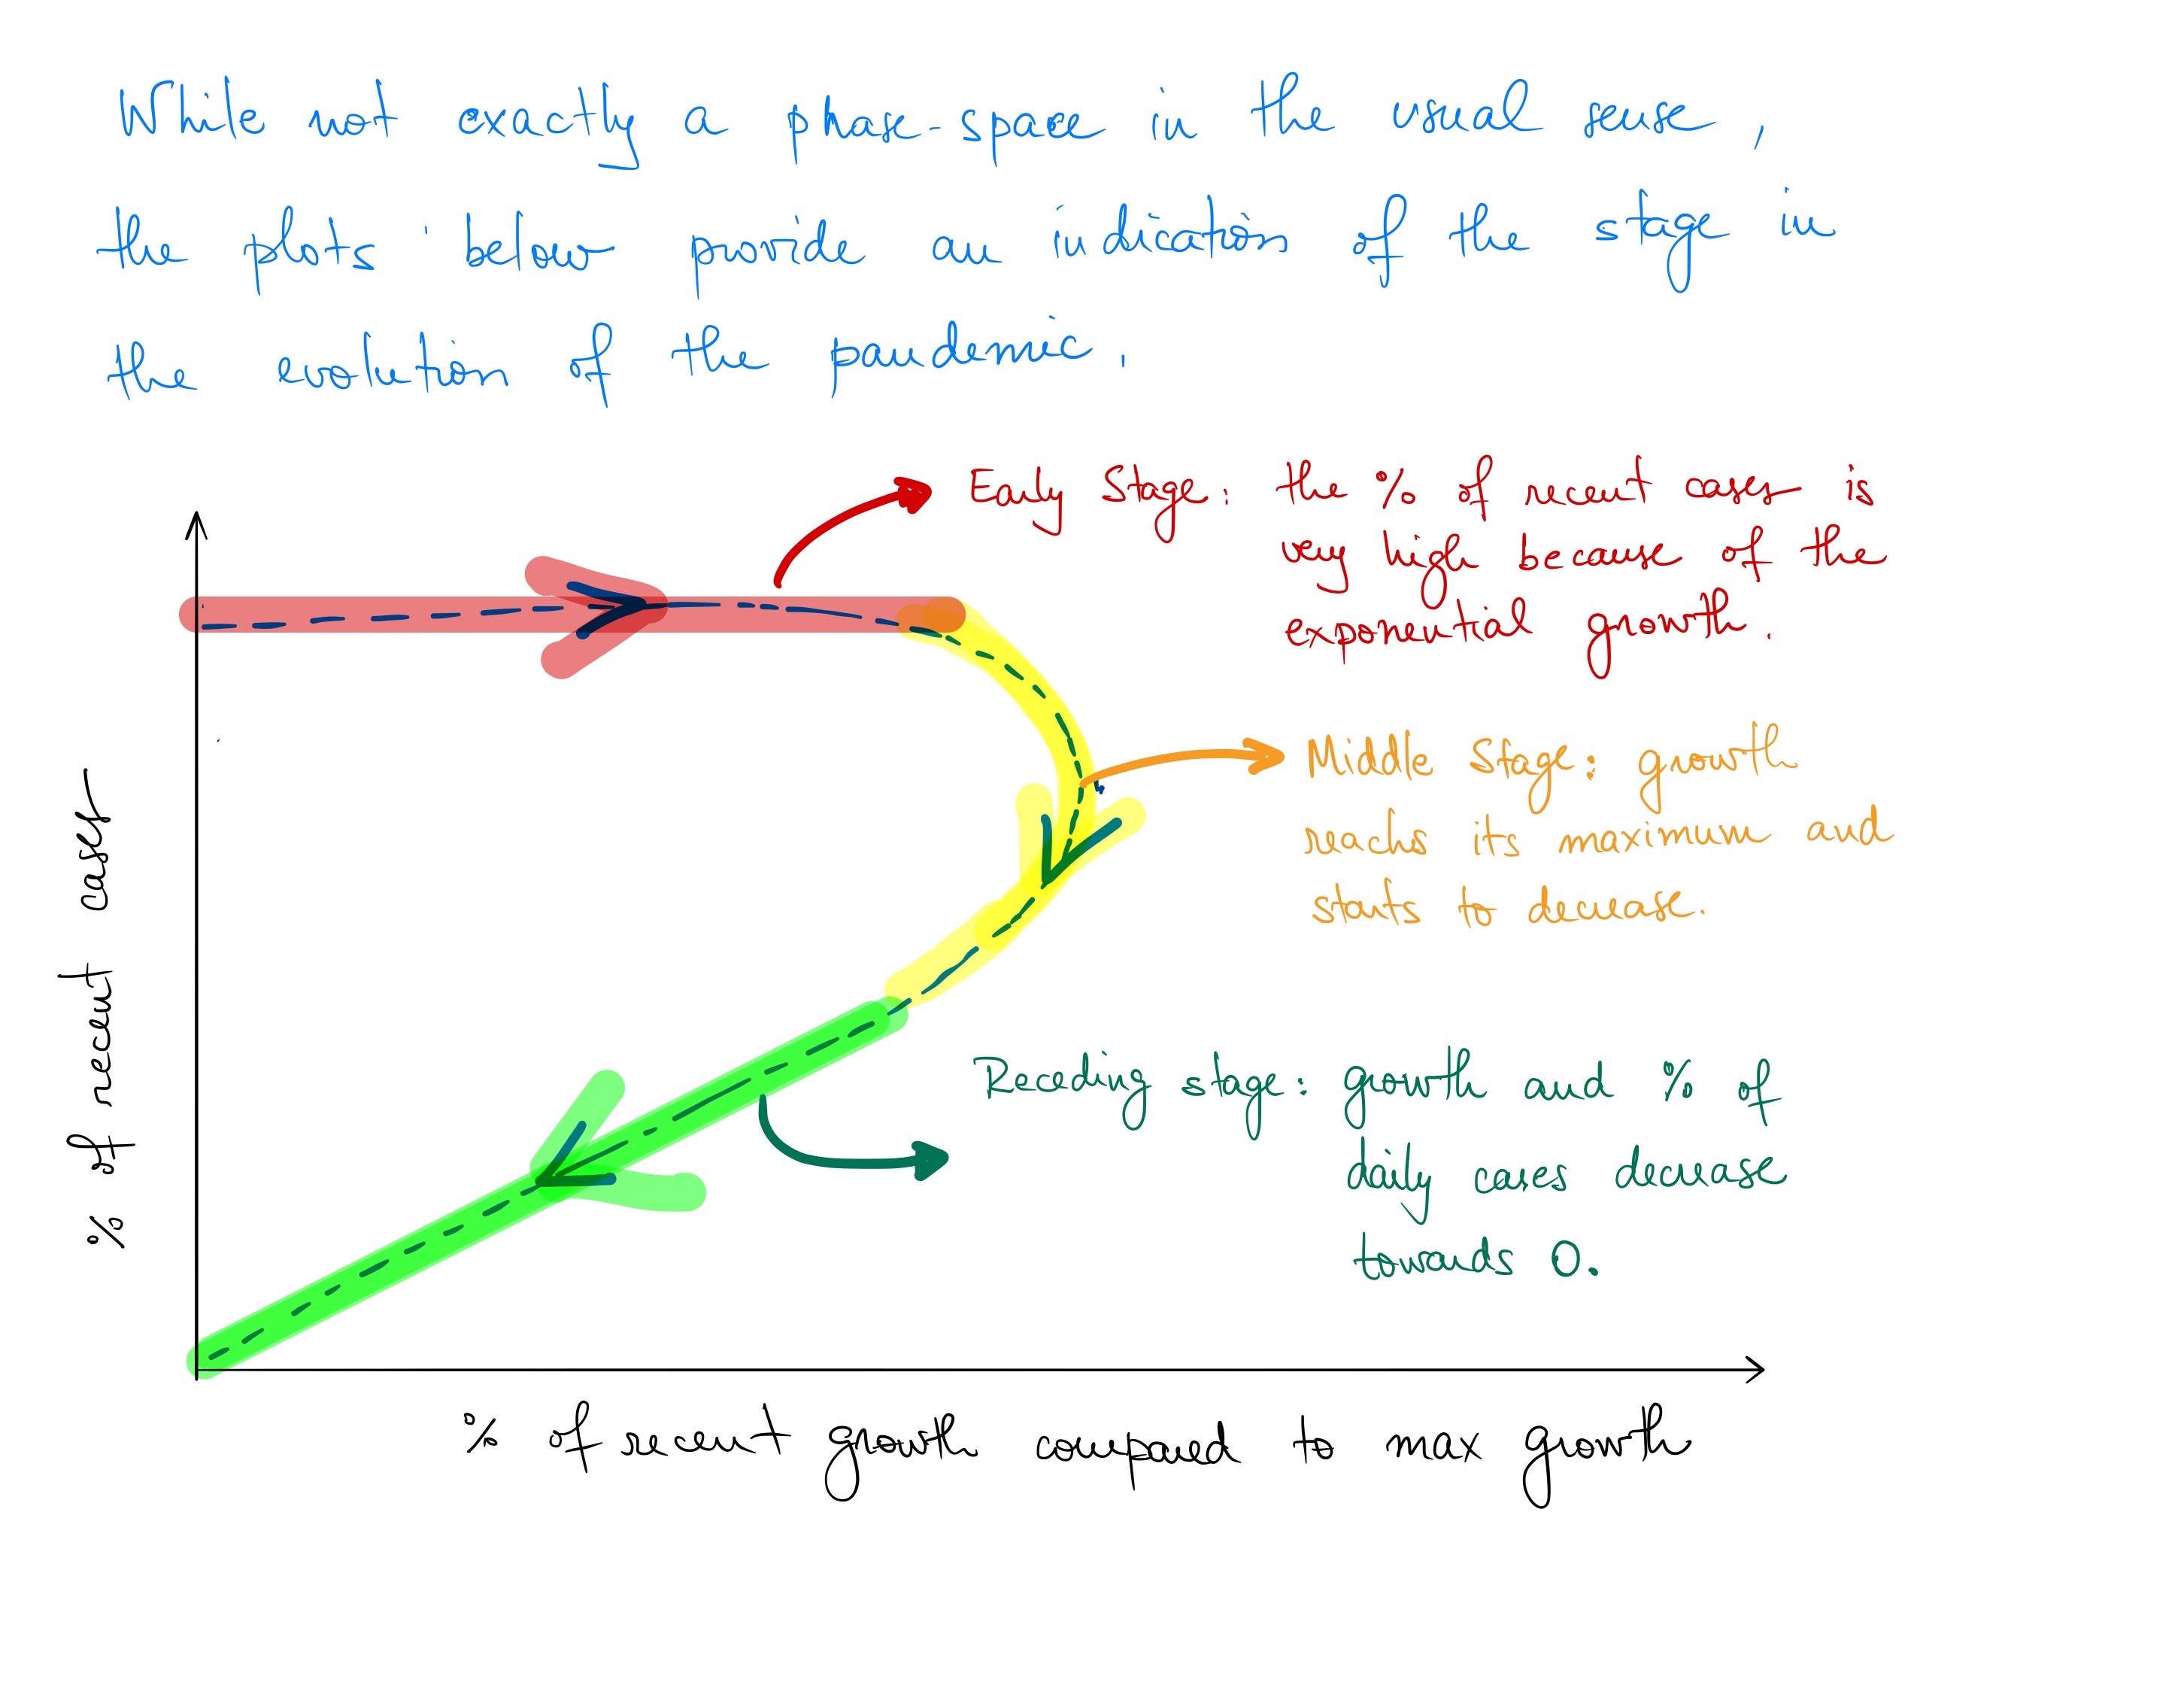 While not exactly a phase-space in the usual sense,
the plots below provide an indication of the stage in
the evolution of the pandemic.
Early Stage: the % of recent cases is
very high because of the
exponential growth.
Middle Stage: growth
reaches its maximum and
starts to decrease.
% of recent cases
Receding stage: growth and % of
daily cases decrease
towards 0.
% of recent growth compared to max growth